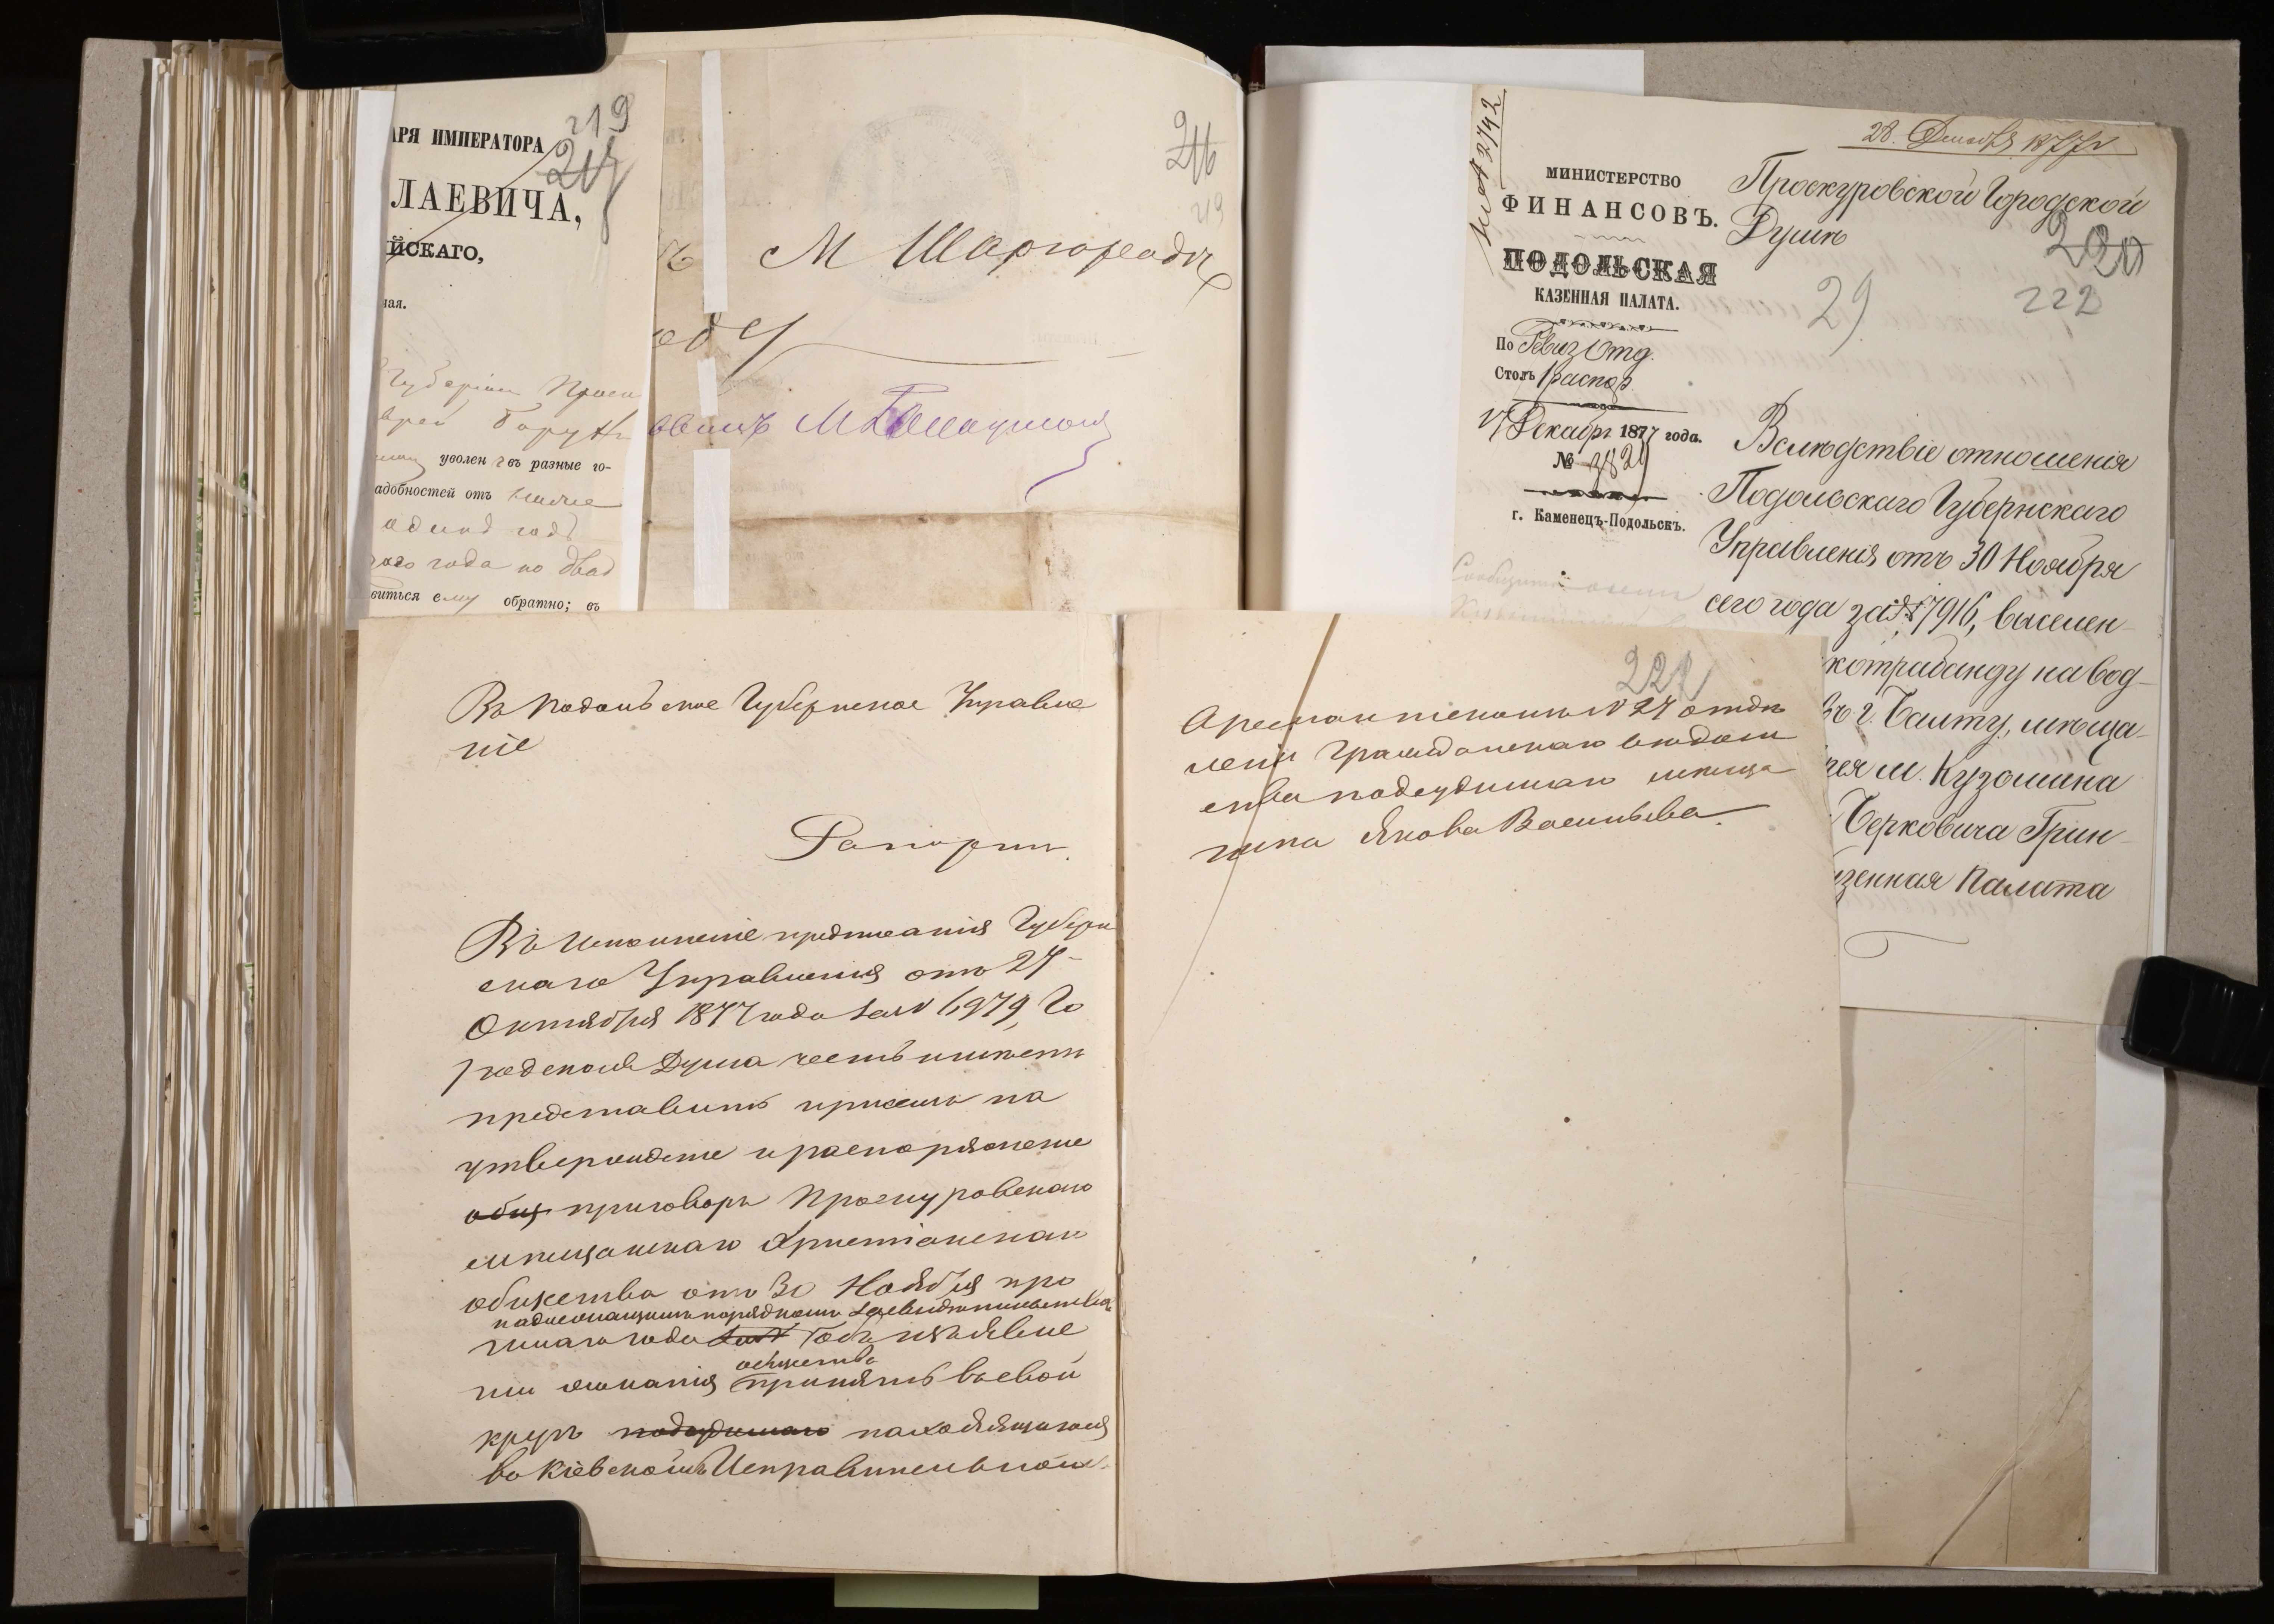 219
АРЯ ИМПЕРАТОРА
ЛАЕВИЧА,
ЙСКАГО,
ная.
Губерніи Проск
врей Борух
уволен въ разные го-
адобностей отъ ниже
одинъ годъ
ого года по двад
виться ему обратно; въ
216
219
М Шаргородъ
28. Декабря 1877 г
2742
МИНИСТЕРСТВО
ФИНАНСОВЪ.
ПОДОЛЬСКАЯ
КАЗЕННАЯ ПАЛАТА.
По Ревиз Отд.
Столъ 1 распор.
17 Декабр 1877 года.
№
г. Каменецъ-Подольскъ.
Проскуровской Городской
Думѣ
220
222
29
Вслѣдствіе отношенія
Подольскаго Губернскаго
Управленія отъ 30 Ноября
сего года за № 7916, выселен-
котрабанду на вод-
въ г. Балту, мѣща-
м. Кузомина
Берковича Грин-
зенная Палата
Въ Подольское Губернское Управле
ніе
Рапортъ.
Въ исполненіе предписанія Губерн
скаго Управленія отъ 27
Октября 1877 года за № 6979, Го
родская Дума честь имѣетъ
представить присемъ на
утвержденіе и распоряженіе
общ приговоръ Проскуровскаго
мѣщанскаго Христіанскаго
общества отъ 30 Ноября про
надлежащимъ порядкомъ засвидѣтельствова
шлаго года за № объ изъявле
общества
ніи желанія принять въ свой
кругъ подсудимаго находящагося
въ Кіевскомъ Исправительномъ
221
Арестантскомъ № 27 отдѣ
леніи Гражданскаго вѣдом
ства подсудимаго мѣща
нина Якова Васильева